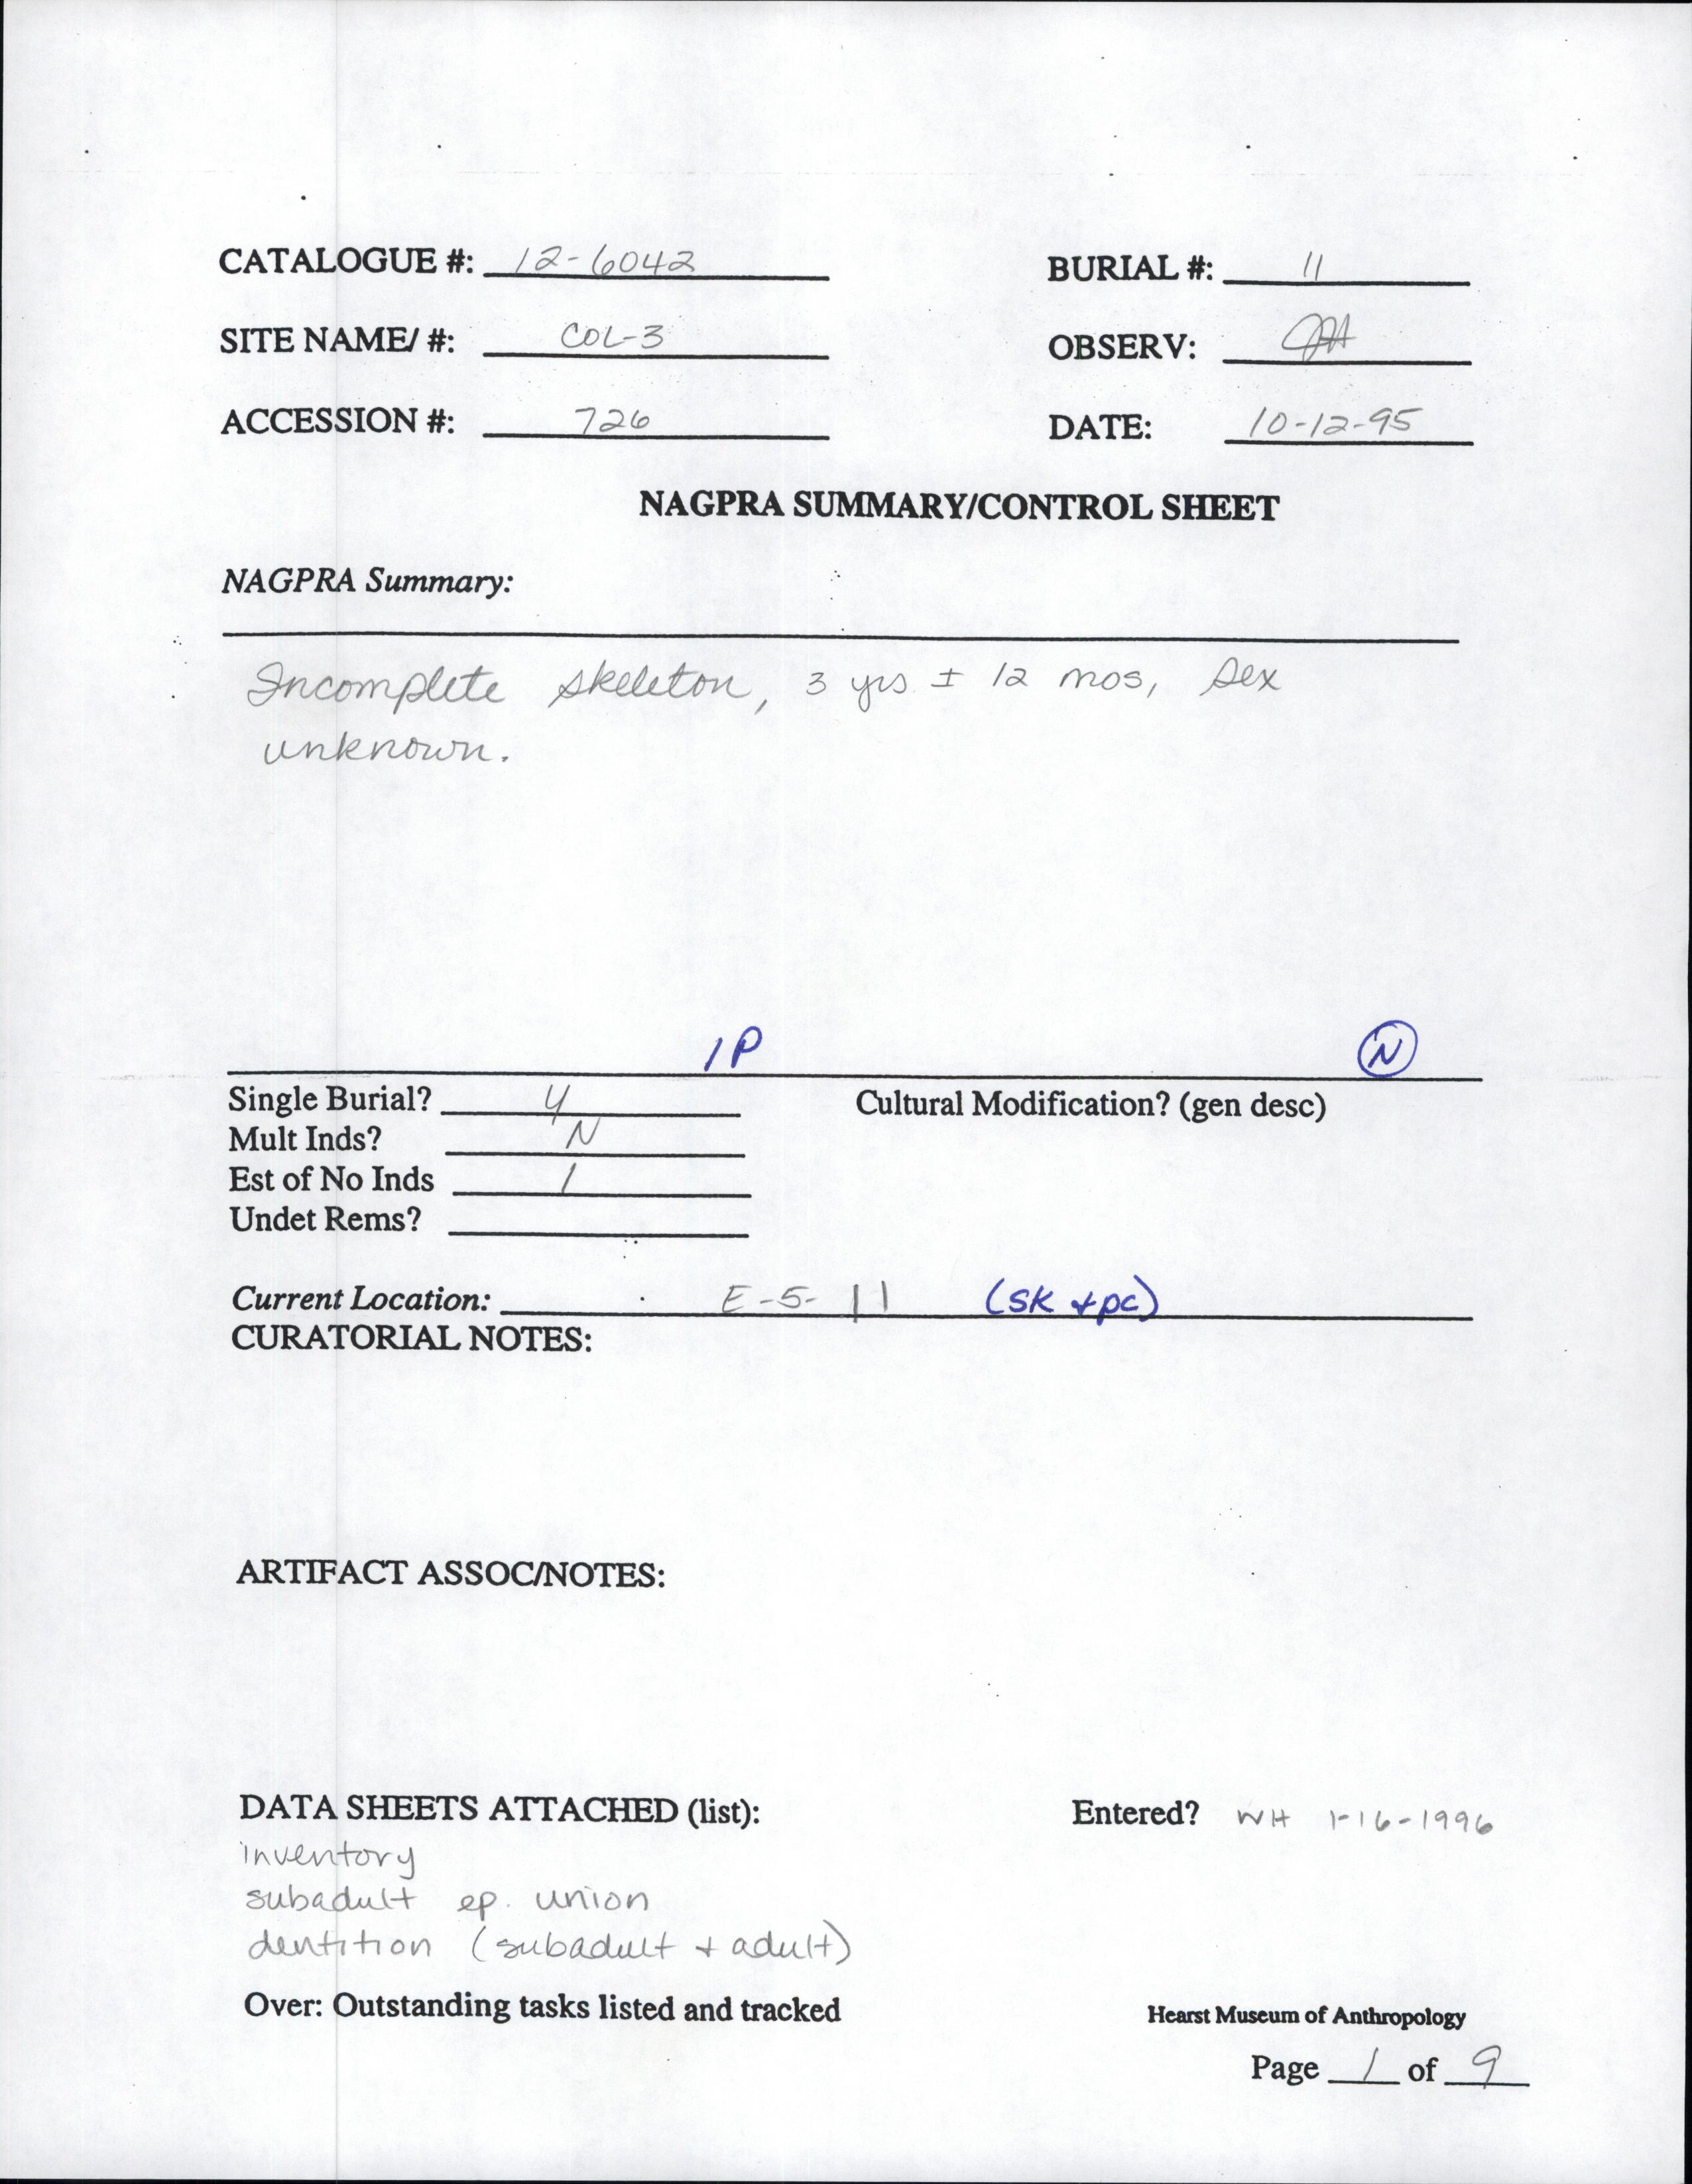 CATALOGUE #: 12-6042 BURIAL #: 11
SITE NAME/ #: COL-3 OBSERV:
ACCESSION #: 726 DATE: 10-12-95
NAGPRA SUMMARY/CONTROL SHEET
NAGPRA Summary:
Incomplete skeleton, 3 yrs ± 12 mos, sex
unknown.
1P N
Single Burial? Y Cultural Modification? (gen desc)
Mult Inds? N
Est of No Inds 1
Undet Rems?
Current Location: E-5-11 (SK + pc)
CURATORIAL NOTES:
ARTIFACT ASSOC/NOTES:
DATA SHEETS ATTACHED (list): Entered? WH 1-16-1996
inventory
subadult ep. union
dentition (subadult + adult)
Over: Outstanding tasks listed and tracked
Hearst Museum of Anthropology
Page 1 of 9